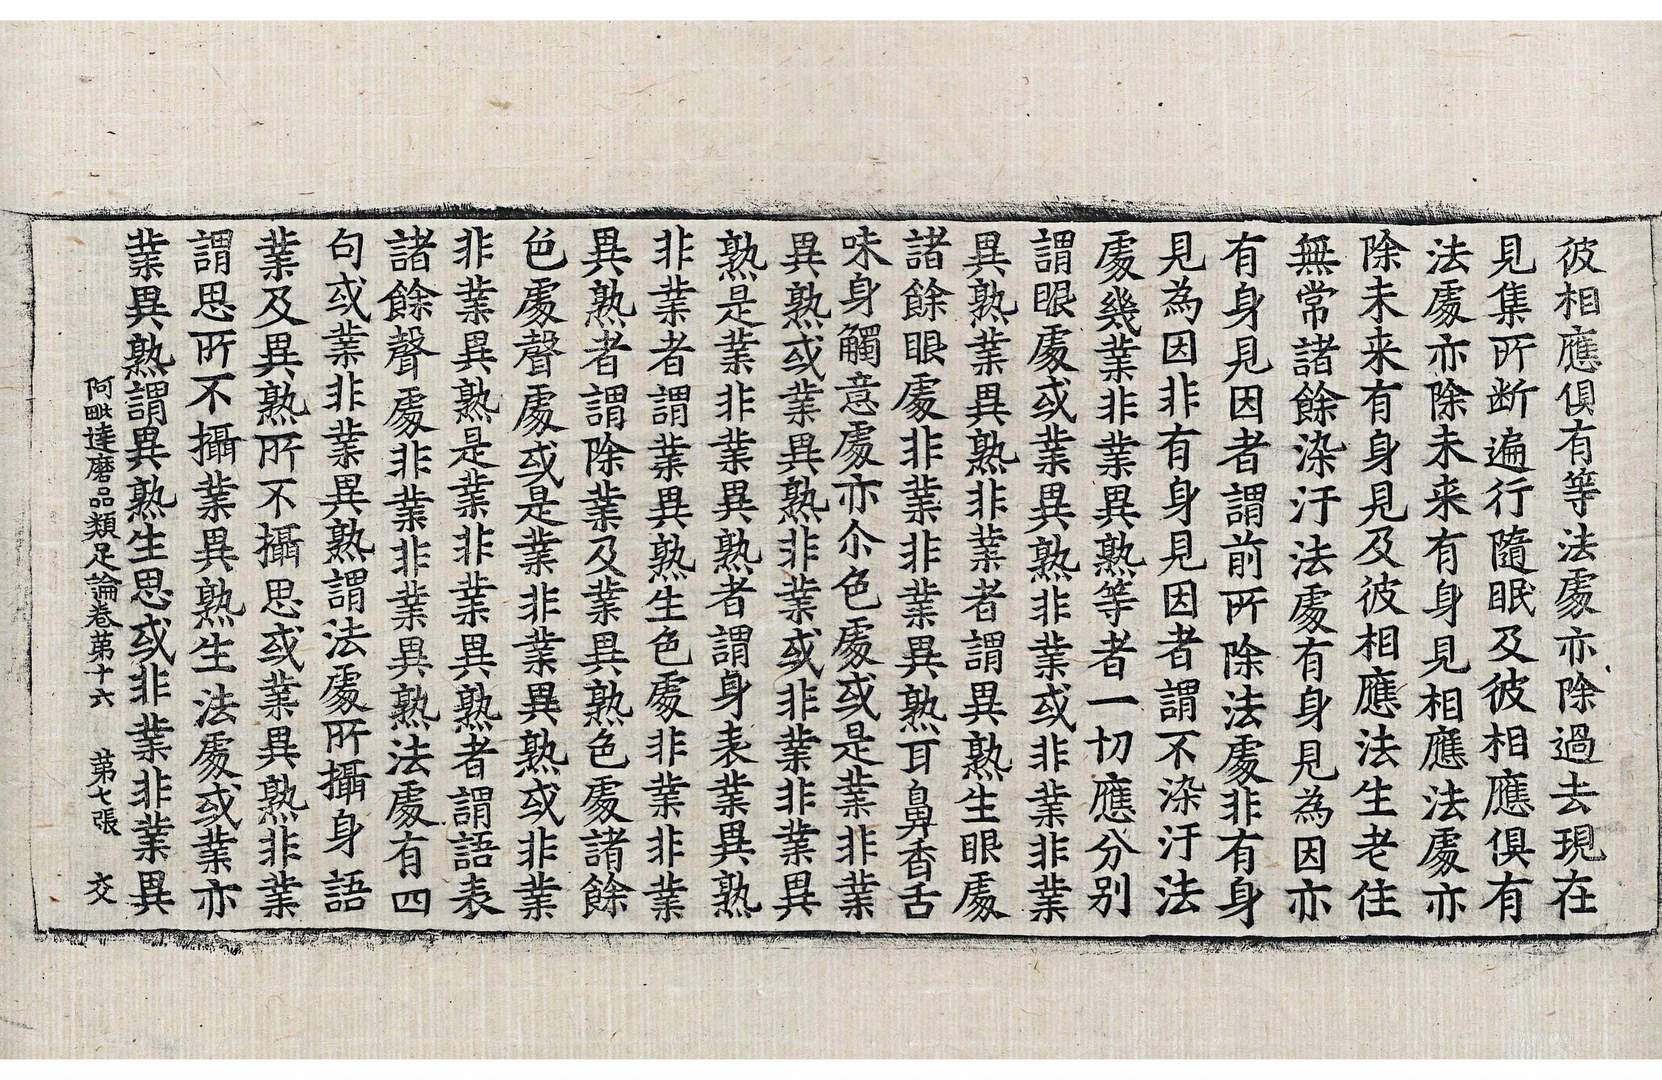 彼相應俱有等法處亦除過去現在
見集所断遍行隨眠及彼相應俱有
法處亦除未来有身見相應法處亦
除未来有身見及彼相應法生老住
無常諸餘染汙法處有身見為因亦
有身見因者謂前所除法處非有身
見為因非有身見因者謂不染汙法
處幾業非業異熟等者一切應分别
謂眼處或業異熟非業或非業非業
異熟業異熟非業者謂異熟生眼處
諸餘眼處非業非業異熟耳鼻香舌
味身觸意處亦尒色處或是業非業
異熟或業異熟非業或非業非業異
熟是業非業異熟者謂身表業異熟
非業者謂業異熟生色處非業非業
異熟者謂除業及業異熟色處諸餘
色處聲處或是業非業異熟或非業
非業異熟是業非業異熟者謂語表
諸餘聲處非業非業異熟法處有四
句或業非業異熟謂法處所攝身語
業及異熟所不攝思或業異熟非業
謂思所不攝業異熟生法處或業亦
業異熟謂異熟生思或非業非業異
阿毗達磨品類足論卷第十六 第七張 交